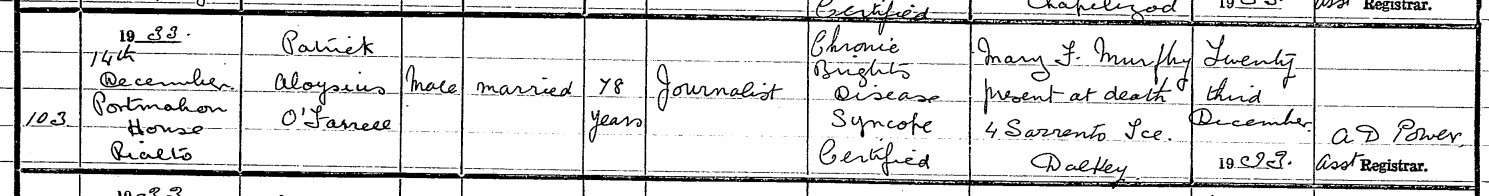 Certified
Chapelizod
Registrar.
103
1933.
14th
December
Portmahon
House
Rialto
Patrick
Aloysius
O'Farrell
Male
married
78
years
Journalist
Chronic
Brights
Disease
Syncope
Certified
Mary F. Murphy
present at death
4 Sorrento Tce.
Dalkey
Twenty
third
December
1933.
A D Power
Asst Registrar.